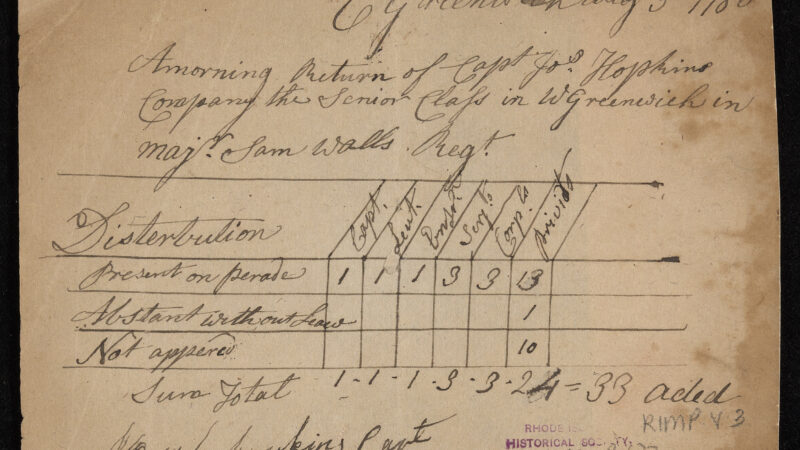 Greenwich Aug 3 178
Amorning Return of Capt Jos. Hopkins
Company the Senior Class in W Greenwich in
majr. Sam Walls Regt.
Disterbution Capt. Leut. Ensn. Serjts Corpls Privits
Present on perade 1 1 1 3 3 13
Abstant without Leave 1
Not appered 10
Sum Total 1 - 1 - 1 - 3 - 3 - 24 = 33 aded
Capt
RIMP V 3
RHODE IS
HISTORICAL SOCIETY